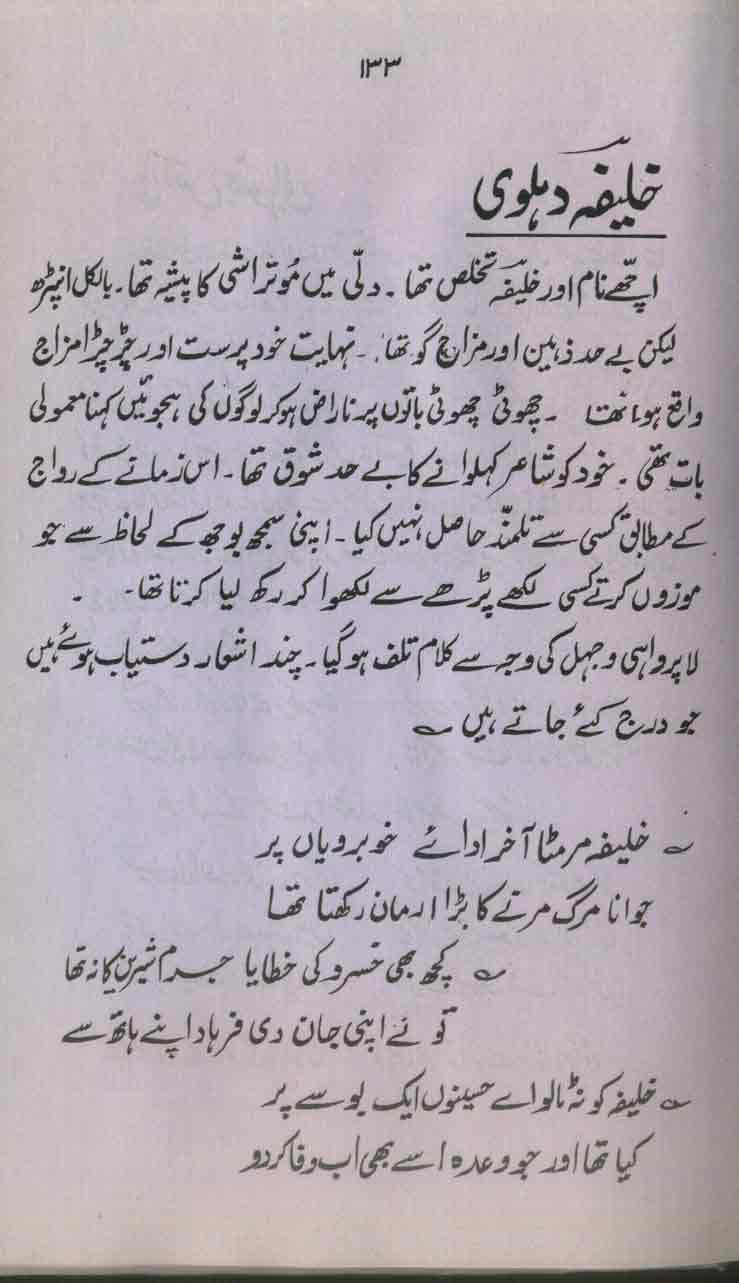 ۱۳۳
خلیفہ دہلوی
اچھے نام اور خلیفہ تخلص تھا ۔ دلّی میں مُوتراشی کا پیشہ تھا ۔ بالکل انپڑھ
لیکن بے حد ذہین اور مزاح گو تھا ۔ نہایت خود پرست اور چڑچڑا مزاج
واقع ہوا تھا ۔ چھوٹی چھوٹی باتوں پر ناراض ہو کر لوگوں کی ہجویں کہنا معمولی
بات تھی ۔ خود کو شاعر کہلوانے کا بے حد شوق تھا ۔ اس زمانے کے رواج
کے مطابق کسی سے تلمّذ حاصل نہیں کیا ۔ اپنی سمجھ بوجھ کے لحاظ سے جو
موزوں کرتے کسی لکھے پڑھے سے لکھوا کر رکھ لیا کرتا تھا ۔
لاپرواہی وجہل کی وجہ سے کلام تلف ہو گیا ۔ چند اشعار دستیاب ہوئے ہیں
جو درج کئے جاتے ہیں ؎
؎ خلیفہ مر مٹا آخر ادائے خوبرویاں پر
جوانا مرگ مرنے کا بڑا ارمان رکھتا تھا
؎ کچھ بھی خسرو کی خطا یا جرم شیریں کا نہ تھا
تو نے اپنی جان دی فرہاد اپنے ہاتھ سے
؎ خلیفہ کو نہ ٹالو اے حسینوں ایک بوسے پر
کیا تھا اور جو وعدہ اسے بھی اب وفا کر دو